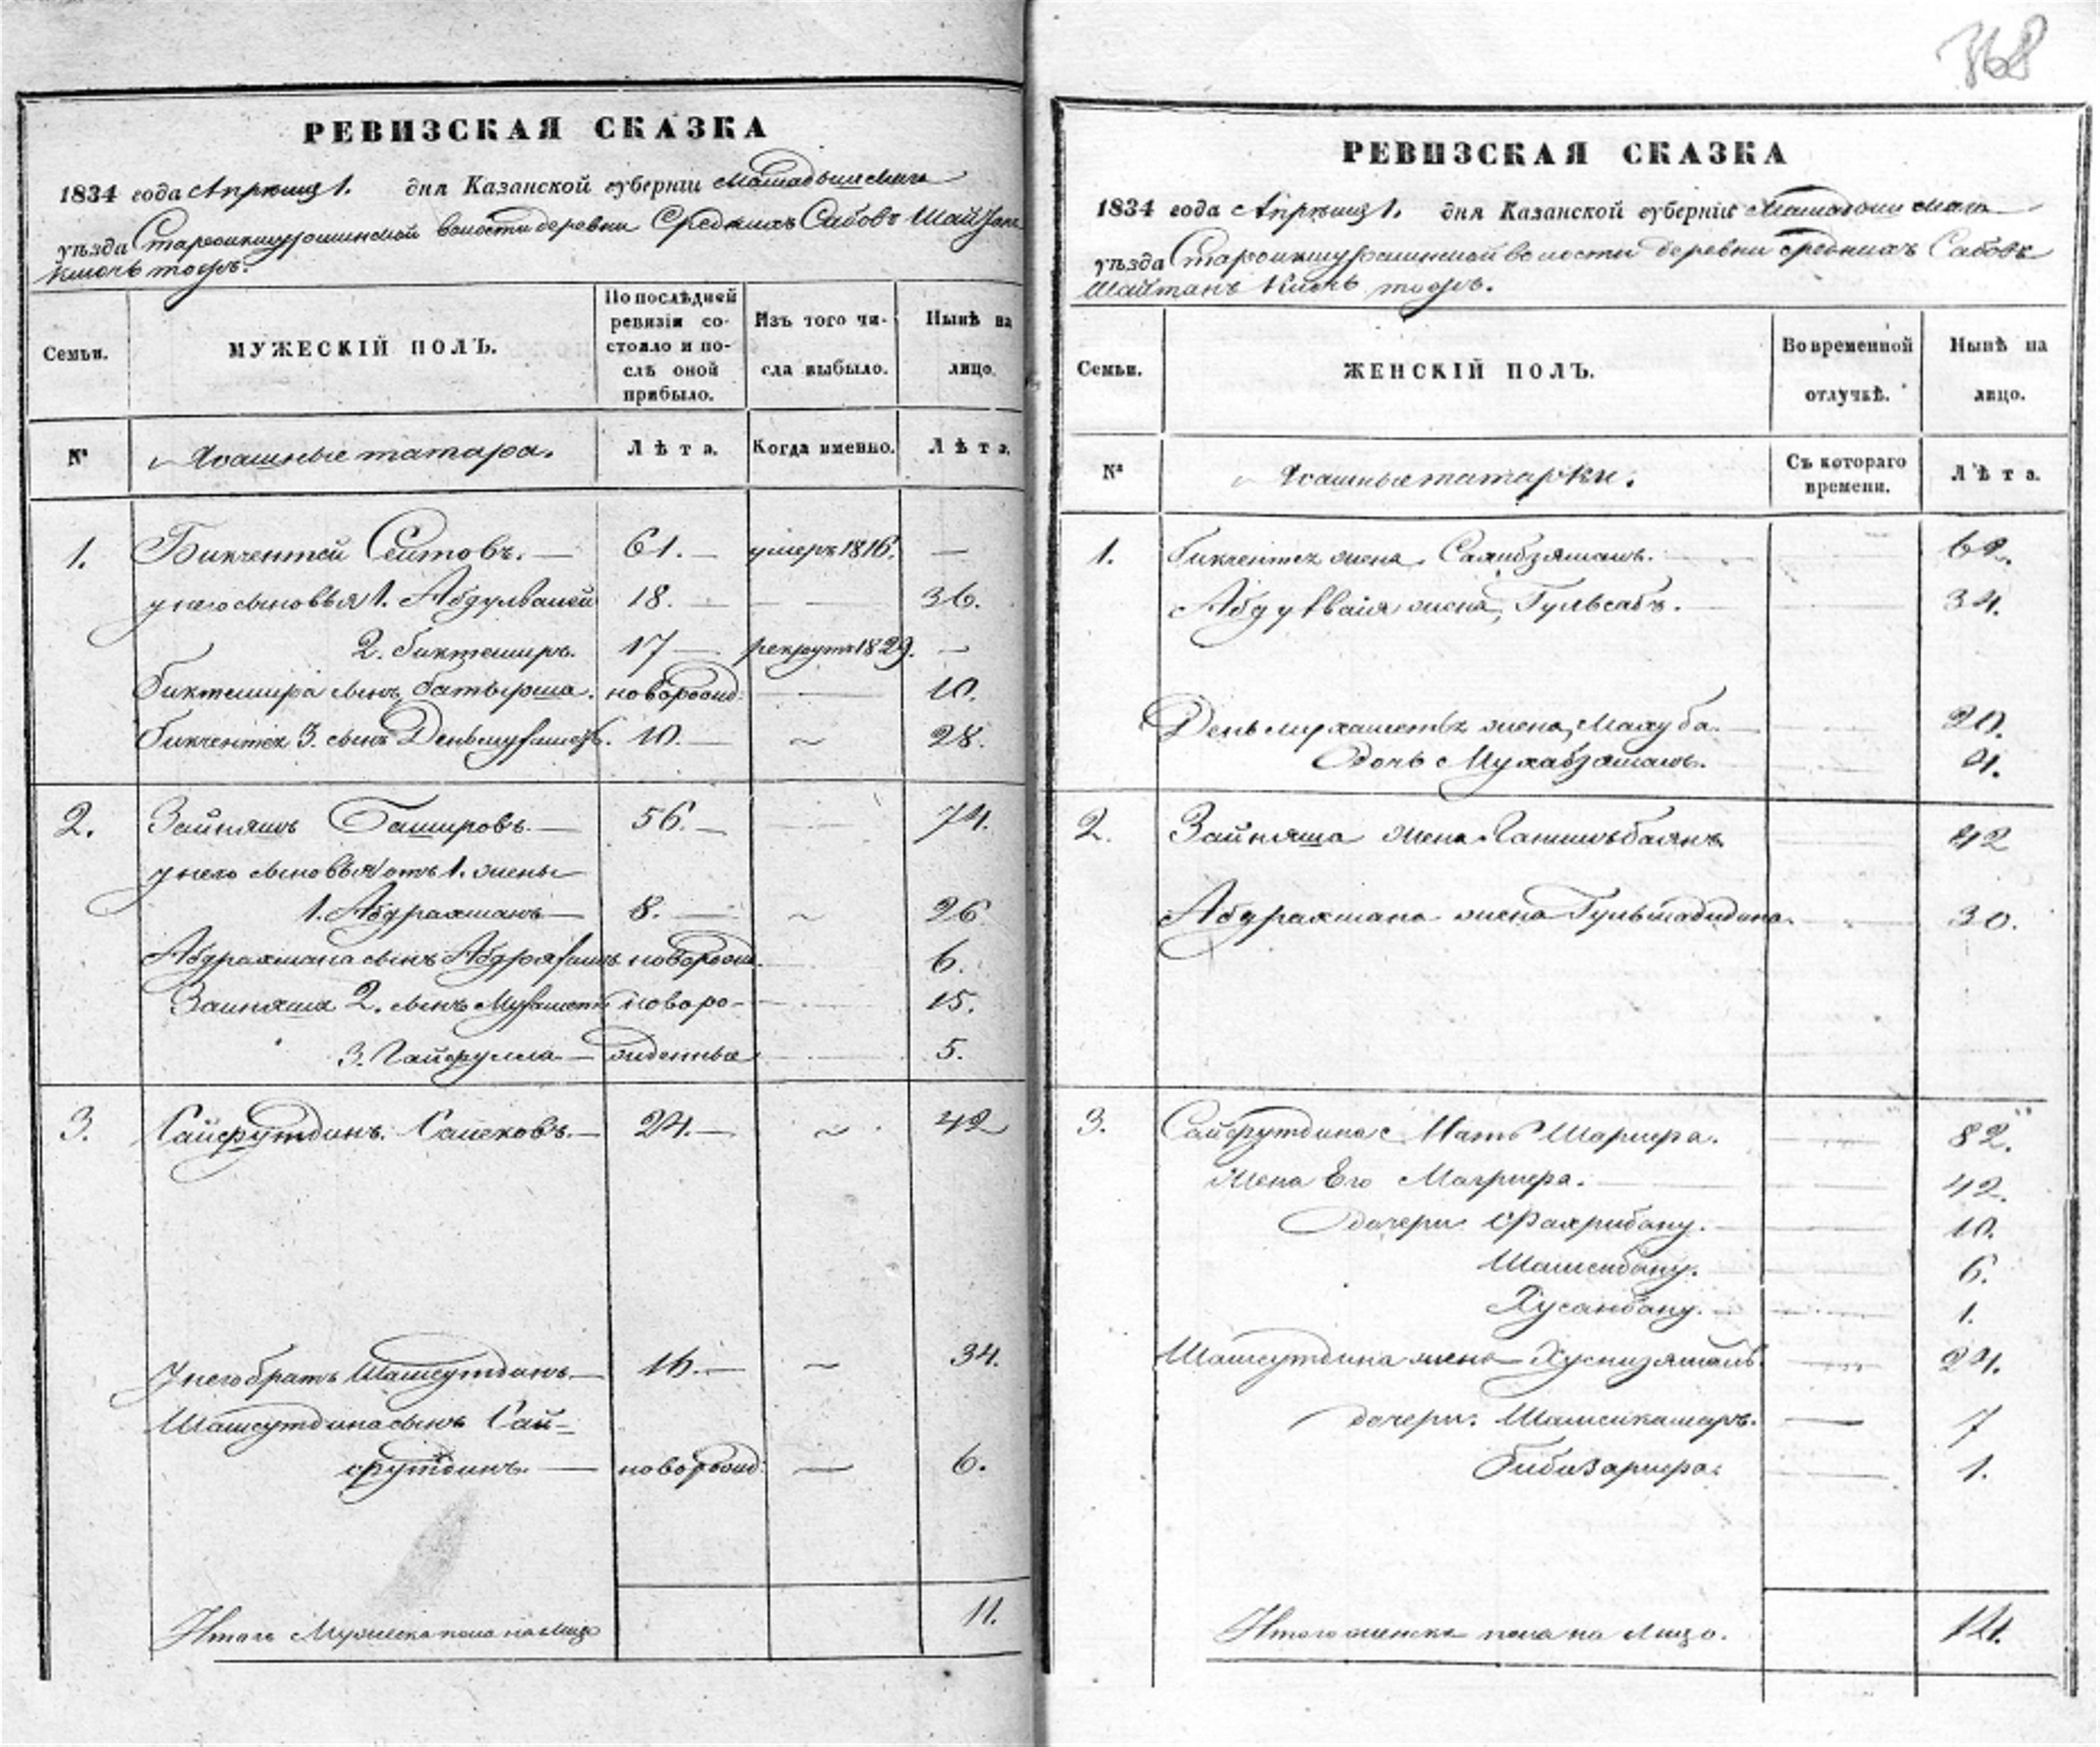 368
РЕВИЗСКАЯ СКАЗКА
1834 года Апрѣля 1. дня Казанской губерніи Мамадышскаго
уѣзда Староикшурминской волости деревни Среднихъ Сабовъ Шайтанъ
Ключь тожъ.
Семьи.
МУЖЕСКІЙ ПОЛЪ.
По послѣдней ревизіи со-
стояло и по-
слѣ оной
прибыло.
Изъ того чи-
сла выбыло.
Нынѣ на
лицо.
№
Ясашные татара.
Лѣта.
Когда именно.
Лѣта.
1. Бикчентей Сеитовъ. — 61. — умеръ 1816. —
у него сыновья 1. Абдулвалей 18. — — 36.
2. Биктемиръ. 17 — рекрутъ 1829. —
Биктемира сынъ Батырша. новорожд: — 10.
Бикчентея 3. сынъ 10. — ~ 28.
2. Зайняшъ Башировъ. — 56. — — 74.
у него сыновья отъ 1. жены
1. Абдрахманъ — 8. — ~ 26
Абдрахмана сынъ новорожд. — 6.
Зайняша 2. сынъ новоро- — 15.
3. Гайфулла — жденные — 5.
3. Сайфутдинъ — 24. — ~ 42
У него братъ Шамсутдинъ — 16. — ~ 34.
Шамсутдина сынъ Сай-
футдинъ. — новорожд: — 6.
Итого Мужеска пола на лицо 11.
РЕВИЗСКАЯ СКАЗКА
1834 года Апрѣля 1. дня Казанской губерніи Мамадышскаго
уѣзда Староикшурминской волости деревни Среднихъ Сабовъ
Шайтанъ Ключь тожъ.
Семьи.
ЖЕНСКІЙ ПОЛЪ.
Во временной
отлучкѣ.
Нынѣ на
лицо.
№
Ясашные татарки.
Съ котораго
времени.
Лѣта.
1. Бикчентея жена — 62.
жена — 34.
жена — 20.
дочь — 4.
2. Зайняша жена — 42
Абдрахмана жена — 30.
3. Сайфутдина Мать — 82.
Жена Его — 42.
дочери Фахрибану. — 10.
Шамсибану. — 6.
Хусанбану. — 1.
Шамсутдина жена — 24.
дочери: Шамсикамаръ. — 7
— 1.
Итого женска пола на лицо. 14.